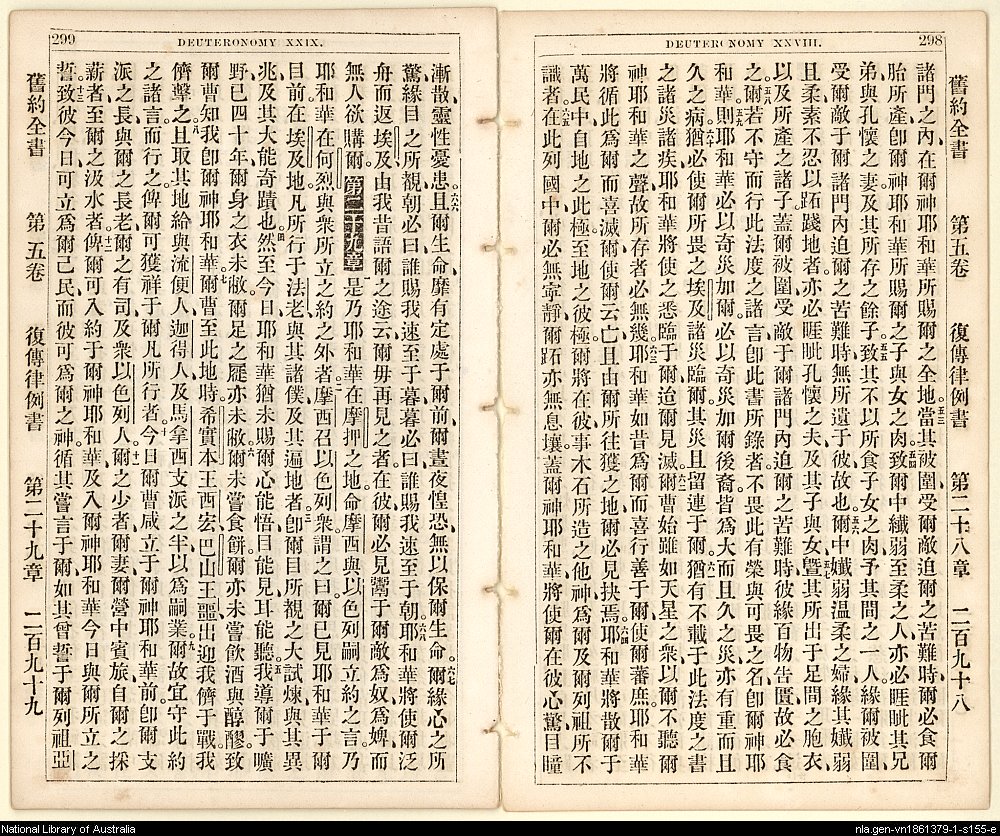 298
DEUTERONOMY XXVIII.
舊約全書 第五卷 復傳律例書 第二十八章 二百九十八
諸門之內、在爾神耶和華所賜爾之全地。五三當其被圍受爾敵迫爾之苦難時、爾必食爾
胎所產、卽爾神耶和華所賜爾之子與女之肉。五四致爾中纖弱至柔之人、亦必睚眦其兄
弟、與孔懷之妻、及其所存之餘子。五五致其不以所食子女之肉、予其間之一人、緣爾被圍、
受爾敵于爾諸門內迫爾之苦難時、無所遺于彼故也。五六爾中孅弱溫柔之婦、緣其孅弱
且柔、素不忍以跖踐地者、亦必睚眦孔懷之夫、及其子與女、五七曁其所出于足間之胞衣、
以及所產之諸子、蓋爾被圍受敵于爾諸門內迫爾之苦難時、彼緣百物告匱、故必食
之。五八爾若不守而行此法度之諸言、卽此書所錄者、不畏此有榮與可畏之名、卽爾神耶
和華、五九則耶和華必以奇災加爾、必以奇災加爾後裔、皆為大而且久之災、亦有重而且
久之病。六十猶必使爾所畏之埃及諸災臨爾、其災且留連于爾。六一猶有不載于此法度之書
之諸災諸疾、耶和華將使之悉臨于爾、迨爾見滅。六二爾曹始雖如天星之眾、以爾不聽爾
神耶和華之聲、故所存者必無幾。六三耶和華如昔為爾而喜行善于爾、使爾蕃庶、耶和華
將循此為爾而喜滅爾、使爾云亡、且由爾所往獲之地、爾必見抉焉。六四耶和華將散爾于
萬民中、自地之此極、至地之彼極、爾將在彼事木石所造之他神、為爾及爾列祖所不
識者。六五在此列國中、爾必無寧靜、爾跖亦無息壤、蓋爾神耶和華、將使爾在彼心驚目瞳
299
DEUTERONOMY XXIX.
漸散、靈性憂患。六六且爾生命靡有定處于爾前、爾晝夜惶恐、無以保爾生命。六七爾緣心之所
驚、緣目之所覩、朝必曰、誰賜我速至于暮、暮必曰、誰賜我速至于朝。六八耶和華將使爾泛
舟而返埃及、由我昔語爾之途云、爾毋再見之者、在彼爾必見鬻于爾敵為奴為婢、而
無人欲購爾。第二十九章 是乃耶和華在摩押之地、命摩西與以色列嗣立約之言、乃
耶和華在何烈與眾所立之約之外者。二摩西召以色列眾、謂之曰、爾已見耶和華于爾
目前、在埃及地、凡所行于法老、與其諸僕、及其遍地者、三卽爾目所覩之大試煉、與其異
兆、及其大能奇蹟也。四然至今日、耶和華猶未賜爾心能悟、目能見、耳能聽。五我導爾于曠
野、已四十年、爾身之衣未敝、爾足之屨亦未敝。六爾未嘗食餅、爾亦未嘗飲酒與醇醪、致
爾曹知我卽爾神耶和華。七爾曹至此地時、希實本王西宏、巴山王噩、出迎我儕于戰、我
儕擊之、八且取其地、給與流便人、迦得人、及馬拿西支派之半、以為嗣業。九爾故宜守此約
之諸言而行之、俾爾可獲祥于爾凡所行者。十今日爾曹咸立于爾神耶和華前、卽爾支
派之長、與爾之長老、爾之有司、及眾以色列人、十一爾之少者、爾妻、爾營中賓旅、自爾之採
薪者、至爾之汲水者、十二俾爾可入約于爾神耶和華、及入爾神耶和華今日與爾所立之
誓、十三致彼今日可立為爾己民、而彼可為爾之神、循其嘗言于爾、如其曾誓于爾列祖、亞
舊約全書 第五卷 復傳律例書 第二十九章 二百九十九
National Library of Australia
nla.gen-vn1861379-1-s155-e